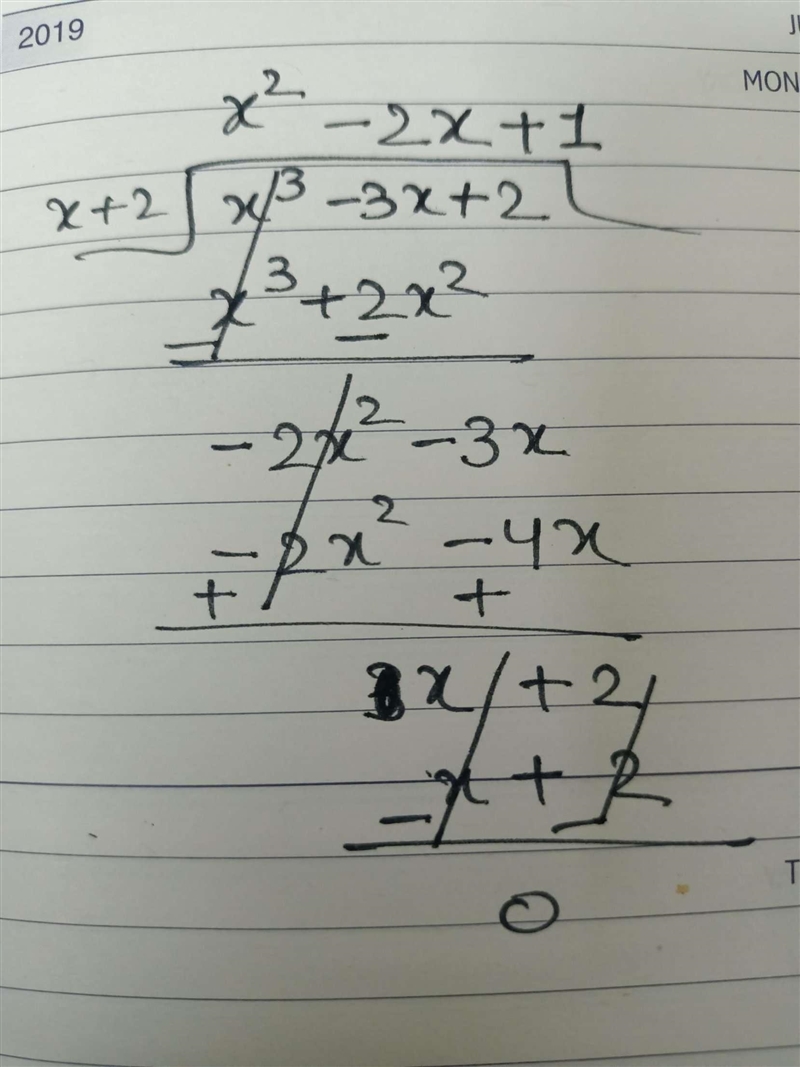 2019
MON
x² - 2x + 1
x + 2 x³ - 3x + 2
x³ + 2x²
- -
- 2x² - 3x
- 2x² - 4x
+ +
x + 2
x + 2
- -
0